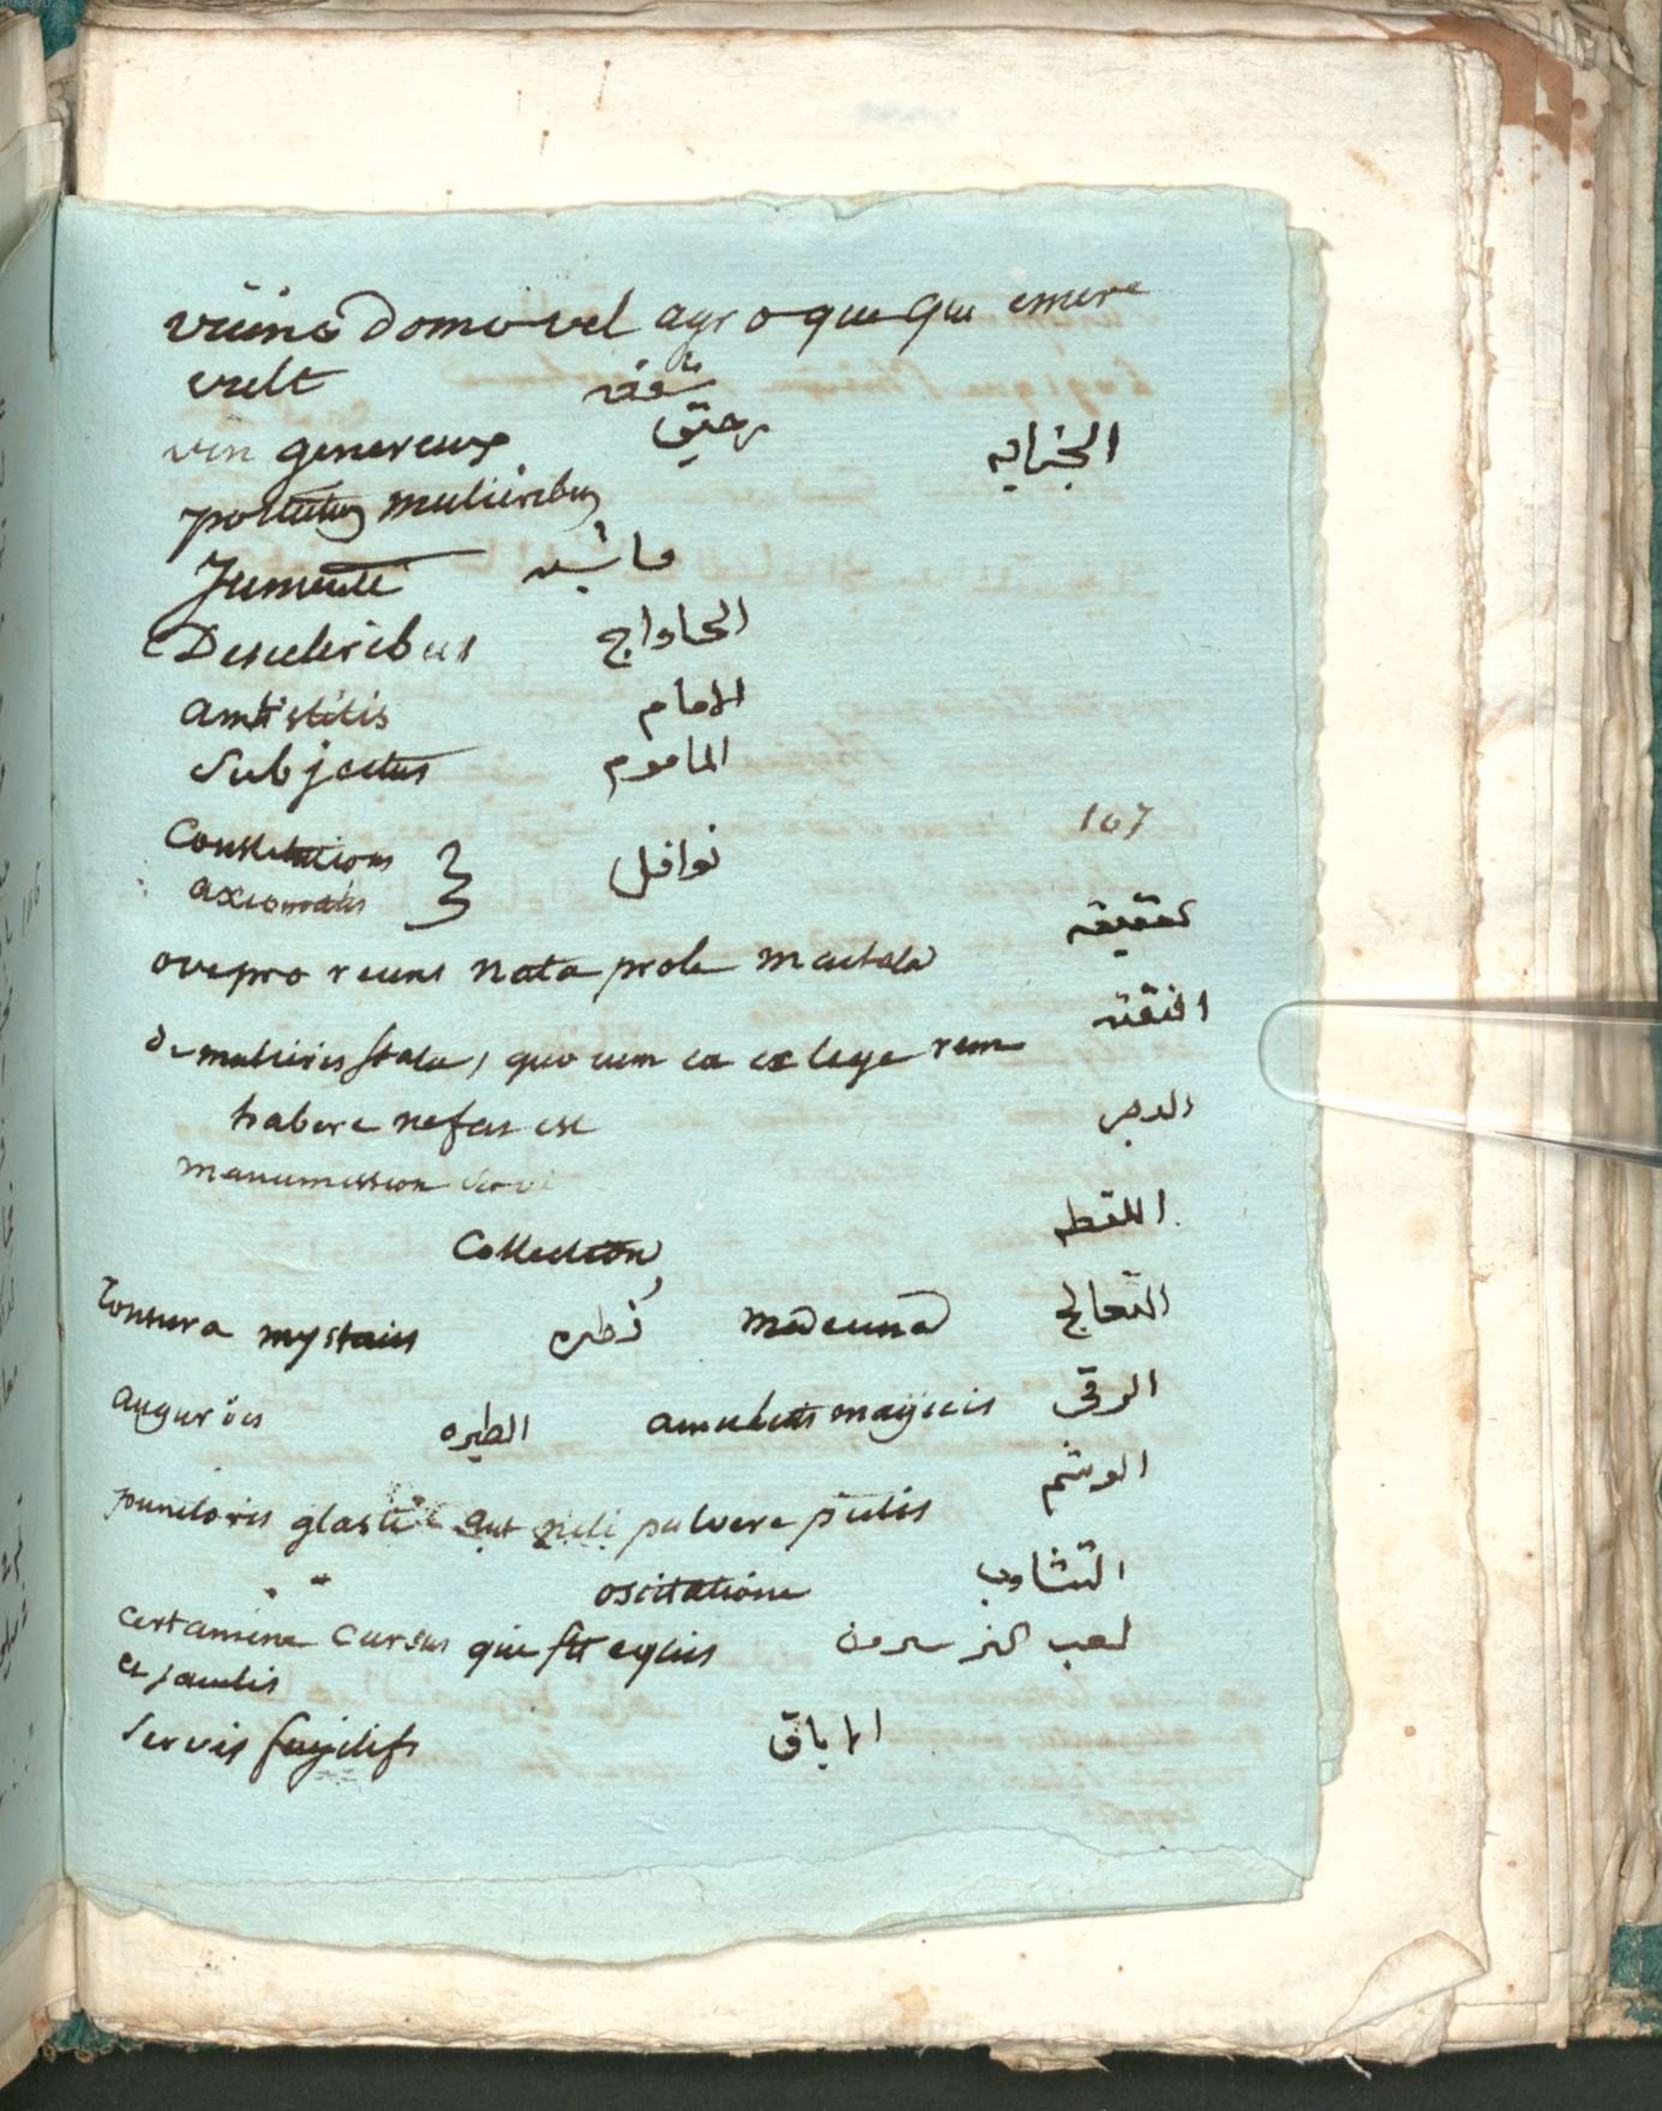 vicino domo vel agro que qui emere
velt شفعه
vin genereux رحيق الجنايه
pollutis mulieribus
Jumenti ماشيه
De sceleribus الحاواج
antistitis الامام
Subjectus الماموم
107
Constitutions
axiomatis نوافل
ove pro recens nata prole mactata عقيقه
de mulieris statu, quo cum ea ex lege rem النفقه
habere nefas est
manumission servi
Collection اللقطه
tonsura mystacis فطره medecina التعالج
auguriis الطيره amuletis magicis الرقى
punctoris glasti aut nili pulvere pictis الوشم
oscitatione التثاوب
certamine cursus qui fit equis لعب
et jaculis
servis fugitifs الاباق